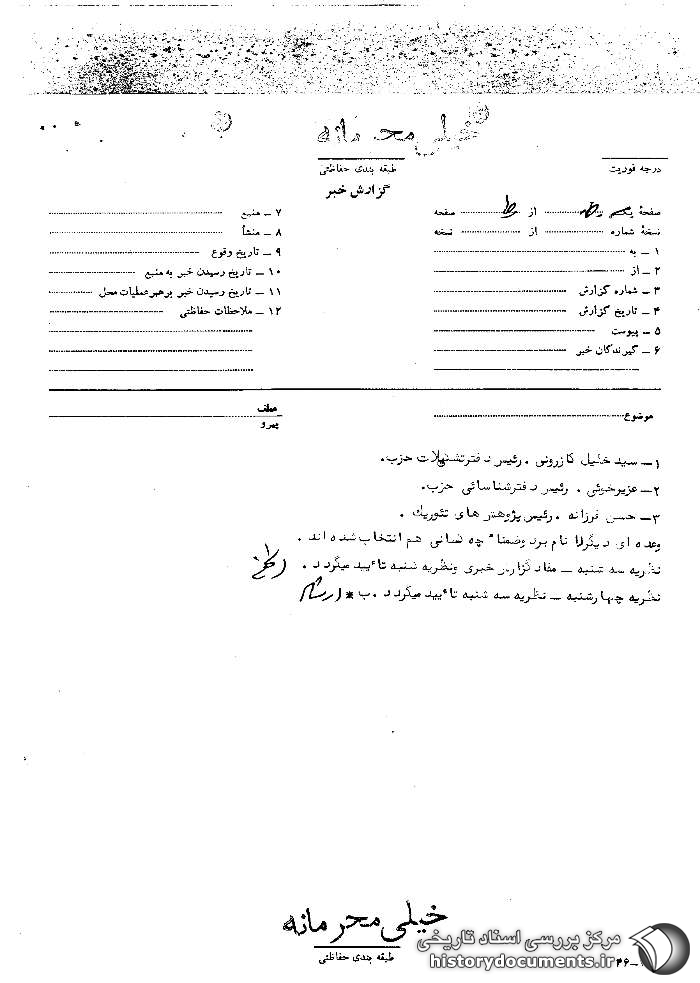 خیلی محرمانه
درجه فوریت
طبقه بندی حفاظتی
گزارش خبر
صفحهٔ از صفحه
نسخهٔ شماره از نسخه
۱ – به
۲ – از
۳ – شماره گزارش
۴ – تاریخ گزارش
۵ – پیوست
۶ – گیرندگان خبر
۷ – منبع
۸ – منشأ
۹ – تاریخ وقوع
۱۰ – تاریخ رسیدن خبر به منبع
۱۱ – تاریخ رسیدن خبر برهبر عملیات محل
۱۲ – ملاحظات حفاظتی
موضوع
عطف
پیرو
۱– سید خلیل کازرونی . رئیس دفتر تشکیلات حزب.
۲– عزیز خوئی . رئیس دفتر شناسائی حزب.
۳– حسن فرزانه . رئیس پژوهش های تئوریک .
وعده ای دیگر را نام برد وضمنا" چه کسانی هم انتخاب شده اند .
نظریه سه شنبه – مفاد گزارش خبری ونظریه شنبه تائید میگردد .
نظریه چهارشنبه – نظریه سه شنبه تائید میگردد . ب *
خیلی محرمانه
طبقه بندی حفاظتی
مرکز بررسی اسناد تاریخی
historydocuments.ir